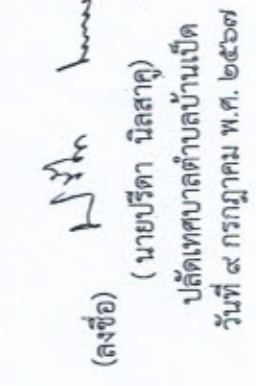 (ลงชื่อ)
( นายปรีดา นิลสาคู)
ปลัดเทศบาลตำบลบ้านเป็ด
วันที่ ๙ กรกฎาคม พ.ศ. ๒๕๖๗